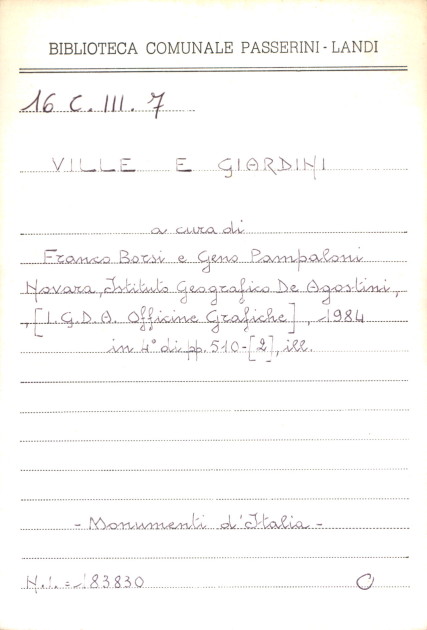 BIBLIOTECA COMUNALE PASSERINI - LANDI
16 C. III. 7
VILLE E GIARDINI
a cura di
Franco Borsi e Geno Pampaloni
Novara, Istituto Geografico De Agostini,
,[I.G.D.A. Officine Grafiche], 1984
in 4° di pp. 510-[2], ill.
- Monumenti d'Italia -
N.i. = 183830
O